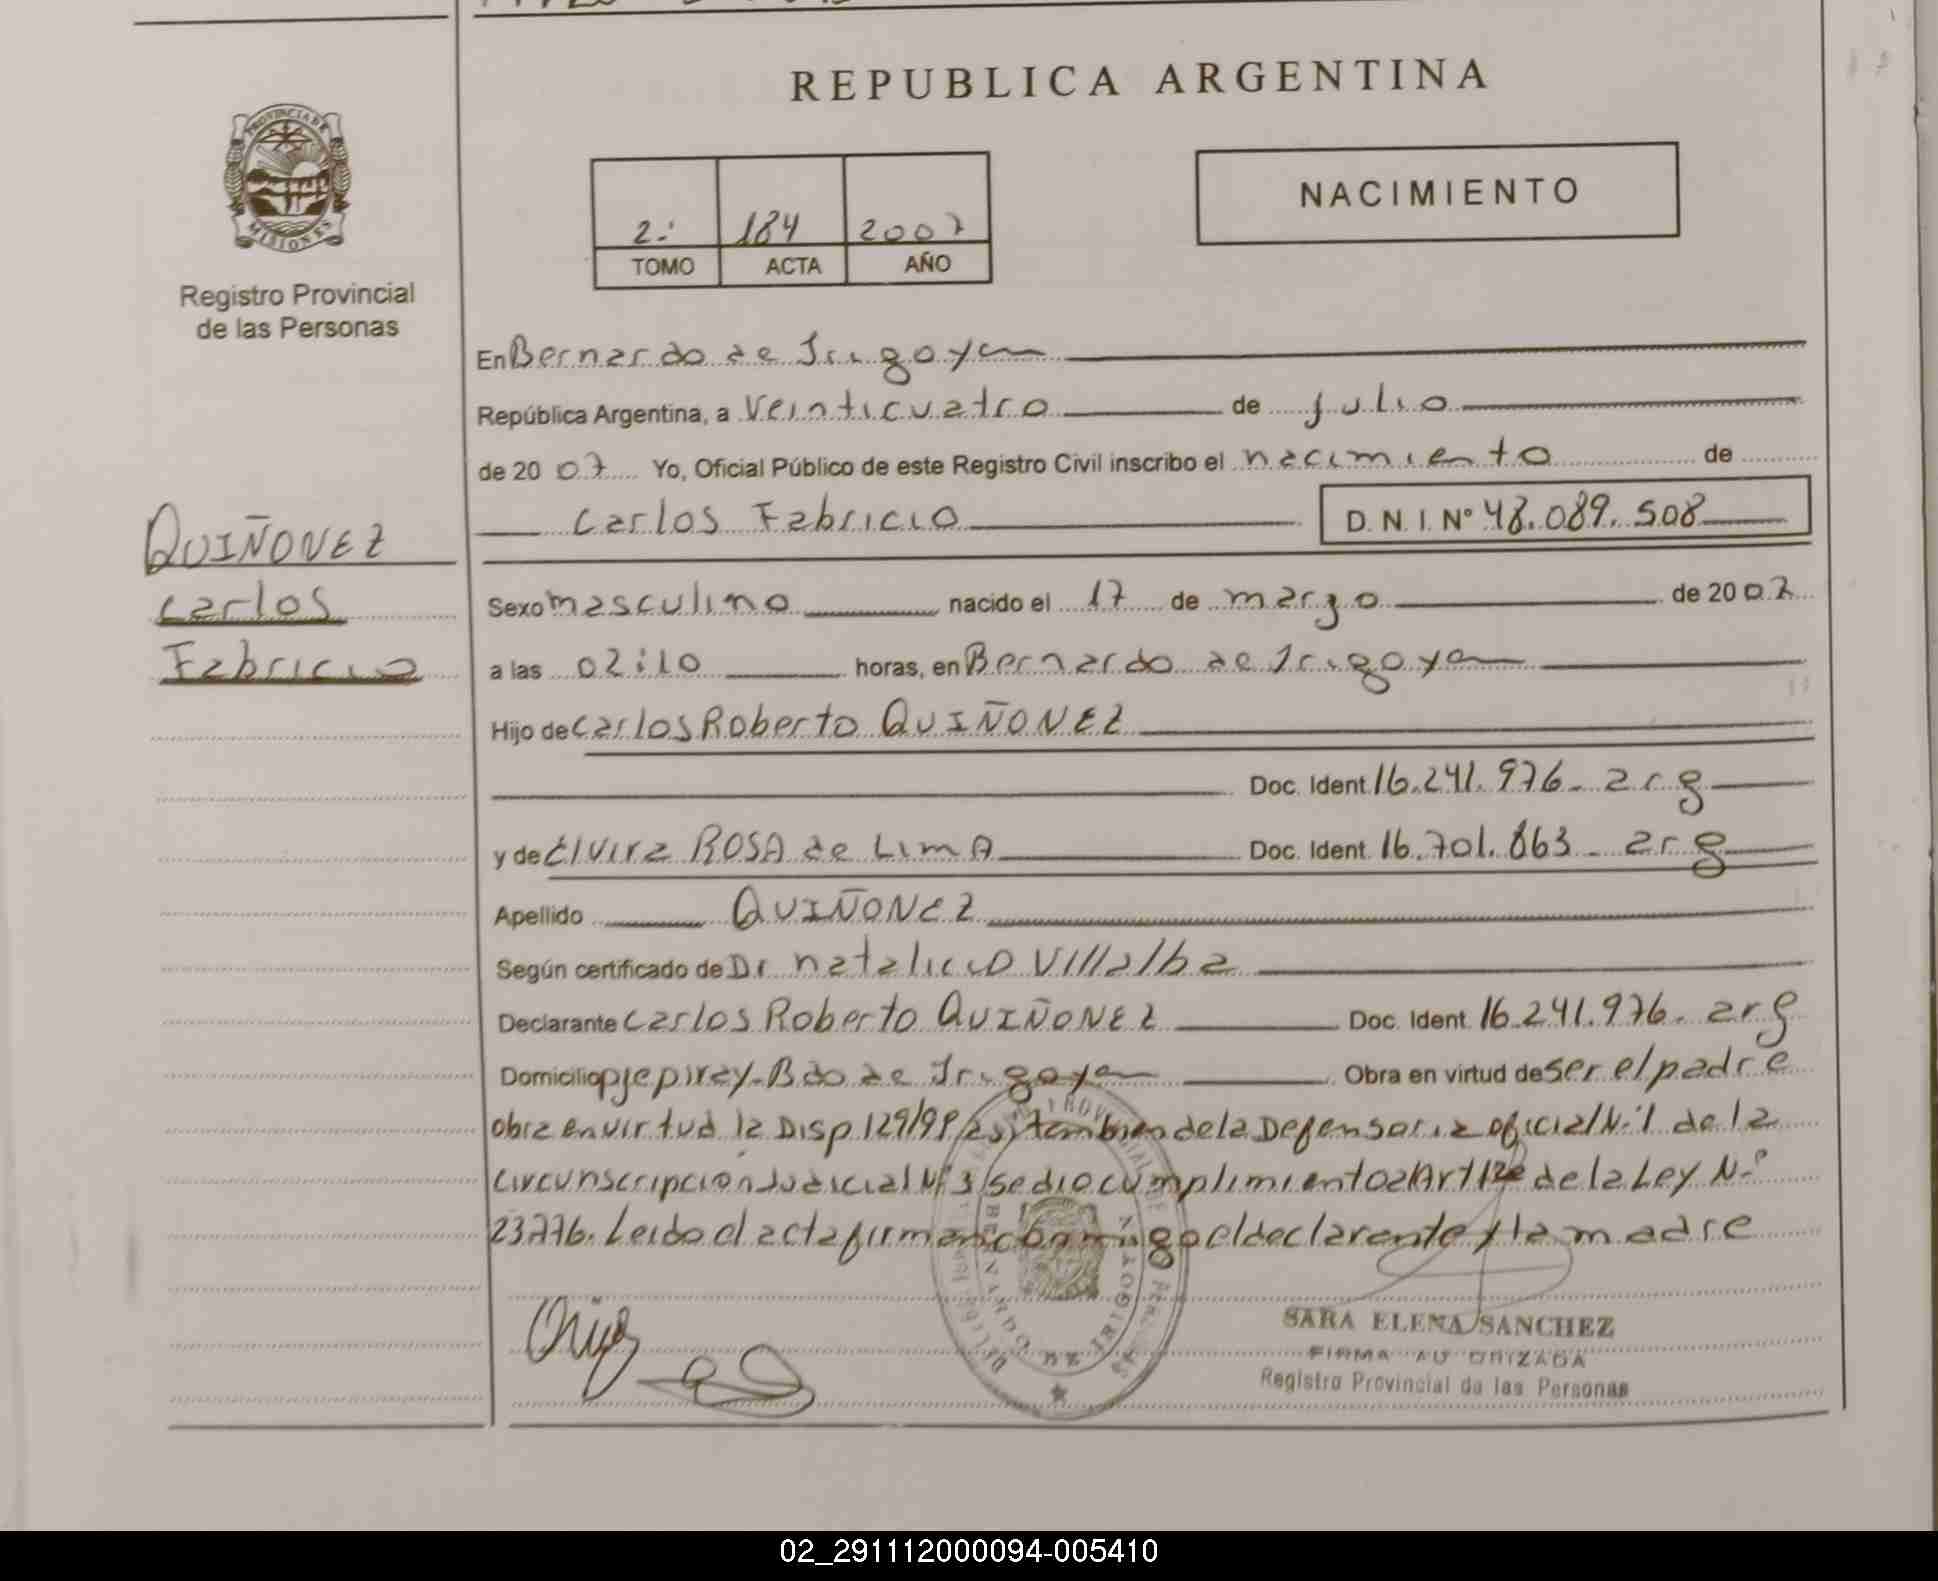 REPUBLICA ARGENTINA
PROVINCIA DE
MISIONES
Registro Provincial
de las Personas
2.º 184 2007
TOMO ACTA AÑO
NACIMIENTO
QUIÑONEZ
Carlos
Fabricio
En Bernardo de Irigoyen
República Argentina, a veinticuatro de julio
de 2007 Yo, Oficial Público de este Registro Civil inscribo el nacimiento de
Carlos Fabricio D.N.I. Nº 48.089.508
Sexo masculino nacido el 17 de marzo de 2007
a las 02:10 horas, en Bernardo de Irigoyen
Hijo de Carlos Roberto QUIÑONEZ
Doc. Ident. 16.241.976 - arg
y de Elvira ROSA de LIMA Doc. Ident. 16.701.863 - arg
Apellido QUIÑONEZ
Según certificado de Dr natalicio Villalba
Declarante Carlos Roberto QUIÑONEZ Doc. Ident. 16.241.976. arg
Domicilio pje piray - Bdo de Irigoyen Obra en virtud de ser el padre
obra en virtud la Disp 129/99 asi tambien de la Defensoria oficial Nº 1 de la
Circunscripcion Judicial Nº 3 se dio cumplimiento al Art 12 de la Ley Nº
23776. Leido el acta firman conmigo el declarante y la madre
SARA ELENA SANCHEZ
FIRMA AUTORIZADA
Registro Provincial de las Personas
BERNARDO DE IRIGOYEN
02_291112000094-005410